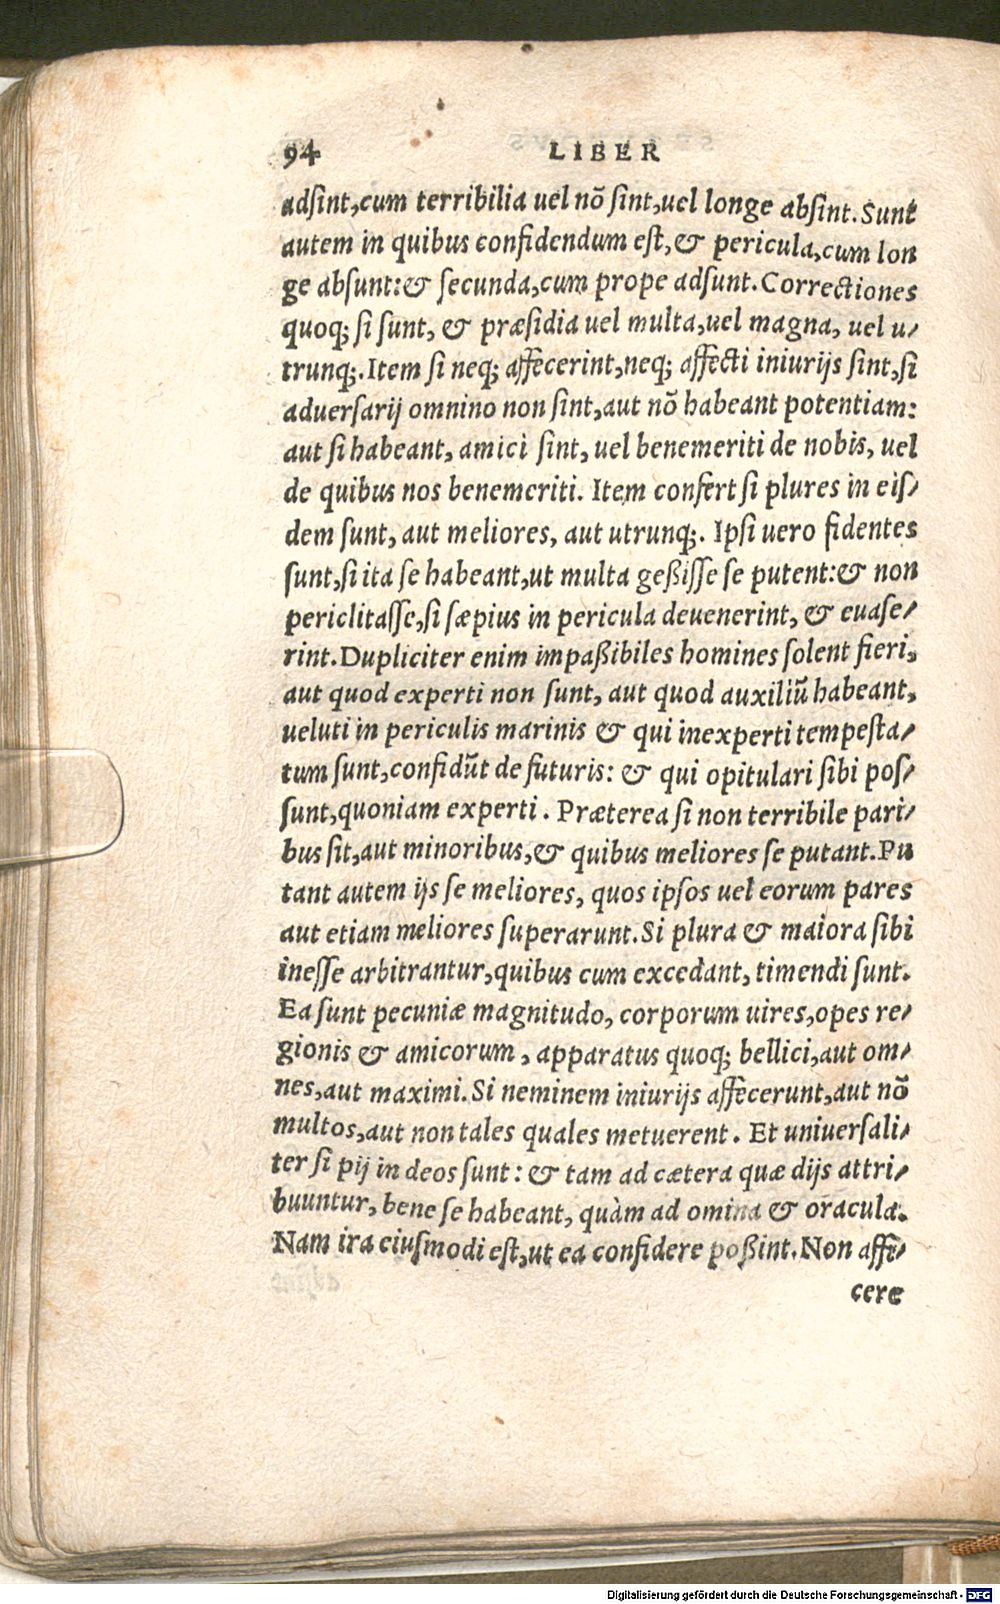 94 LIBER
adsint,cum terribilia uel nõ sint,uel longe absint.Sunt
autem in quibus confidendum est,& pericula,cum lon
ge absunt:& secunda,cum prope adsunt.Correctiones
quoq; si sunt, & præsidia uel multa,uel magna, uel u/
trunq;.Item si neq; affecerint,neq; affecti iniurijs sint,si
aduersarij omnino non sint,aut nõ habeant potentiam:
aut si habeant, amici sint, uel benemeriti de nobis, uel
de quibus nos benemeriti. Item confert si plures in eis/
dem sunt, aut meliores, aut utrunq;. Ipsi uero fidentes
sunt,si ita se habeant,ut multa geßisse se putent:& non
periclitasse,si sæpius in pericula deuenerint, & euase/
rint.Dupliciter enim impaßibiles homines solent fieri,
aut quod experti non sunt, aut quod auxiliũ habeant,
ueluti in periculis marinis & qui inexperti tempesta/
tum sunt,confidũt de futuris: & qui opitulari sibi pos/
sunt,quoniam experti. Præterea si non terribile pari/
bus sit,aut minoribus,& quibus meliores se putant.Pu
tant autem ijs se meliores, quos ipsos uel eorum pares
aut etiam meliores superarunt.Si plura & maiora sibi
inesse arbitrantur,quibus cum excedant, timendi sunt.
Ea sunt pecuniæ magnitudo, corporum uires,opes re/
gionis & amicorum, apparatus quoq; bellici,aut om/
nes,aut maximi.Si neminem iniurijs affecerunt,aut nõ
multos,aut non tales quales metuerent. Et uniuersali/
ter si pij in deos sunt: & tam ad cætera quæ dijs attri/
buuntur, bene se habeant, quàm ad omina & oracula.
Nam ira eiusmodi est,ut ea confidere poßint.Non affi/
cere
Digitalisierung gefördert durch die Deutsche Forschungsgemeinschaft - DFG